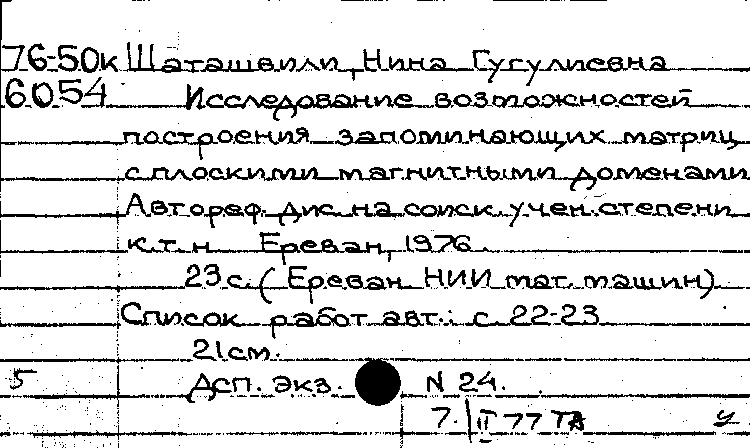 76-50к Шаташвили, Нина Гугулиевна
6054 Исследование возможностей
построения запоминающих матриц
с плоскими магнитными доменами
Автореф. дис. на соиск. учен. степени
к. т. н Ереван, 1976.
23 с. (Ереван. НИИ мат. машин)
Список работ авт.: с. 22-23
21 см.
5 Дсп. экз. N 24.
7. II 77 ТА у